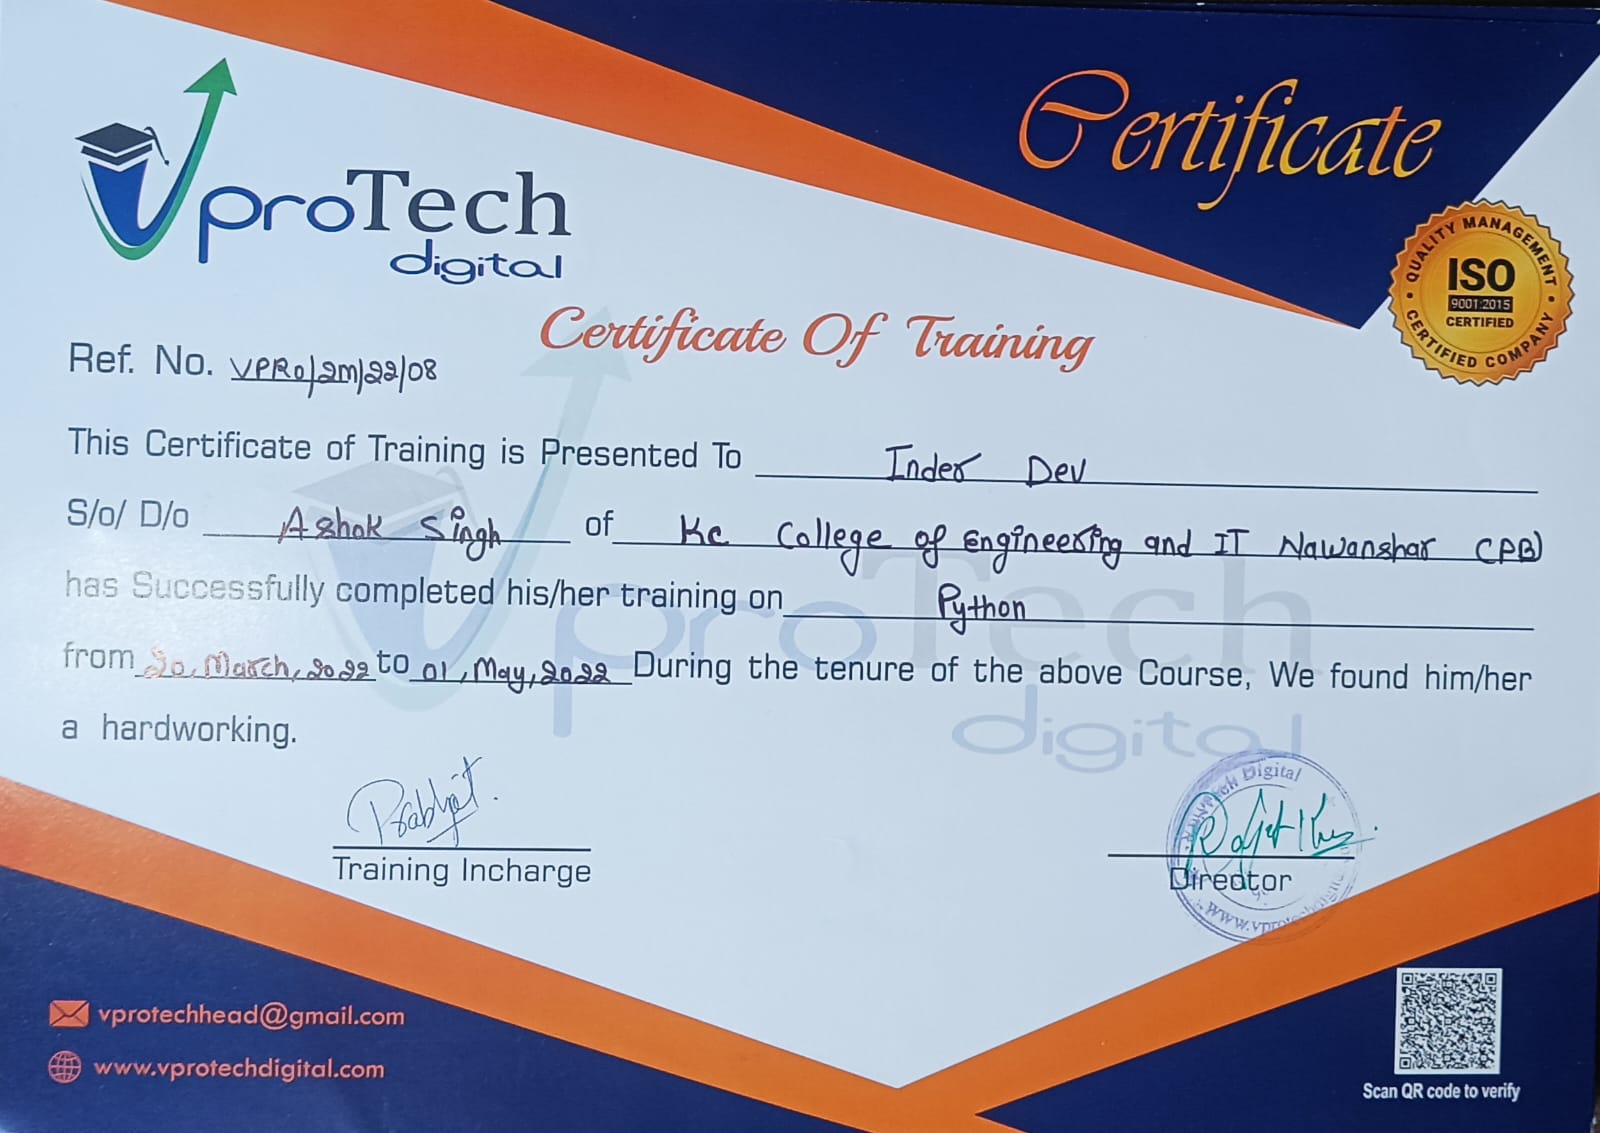 Certificate
VproTech
digital
QUALITY MANAGEMENT
ISO
9001:2015
CERTIFIED
CERTIFIED COMPANY
Certificate Of Training
Ref. No. VPRO/2m/22/08
This Certificate of Training is Presented To Inder Dev
S/o/ D/o Ashok Singh of Kc College of Engineering and IT Nawanshar (PB)
has Successfully completed his/her training on Python
from 20, March, 2022 to 01, May, 2022 During the tenure of the above Course, We found him/her
a hardworking.
Prabhjot.
Training Incharge
Tech Digital
Director
www.vprotechdigital
vprotechhead@gmail.com
www.vprotechdigital.com
Scan QR code to verify